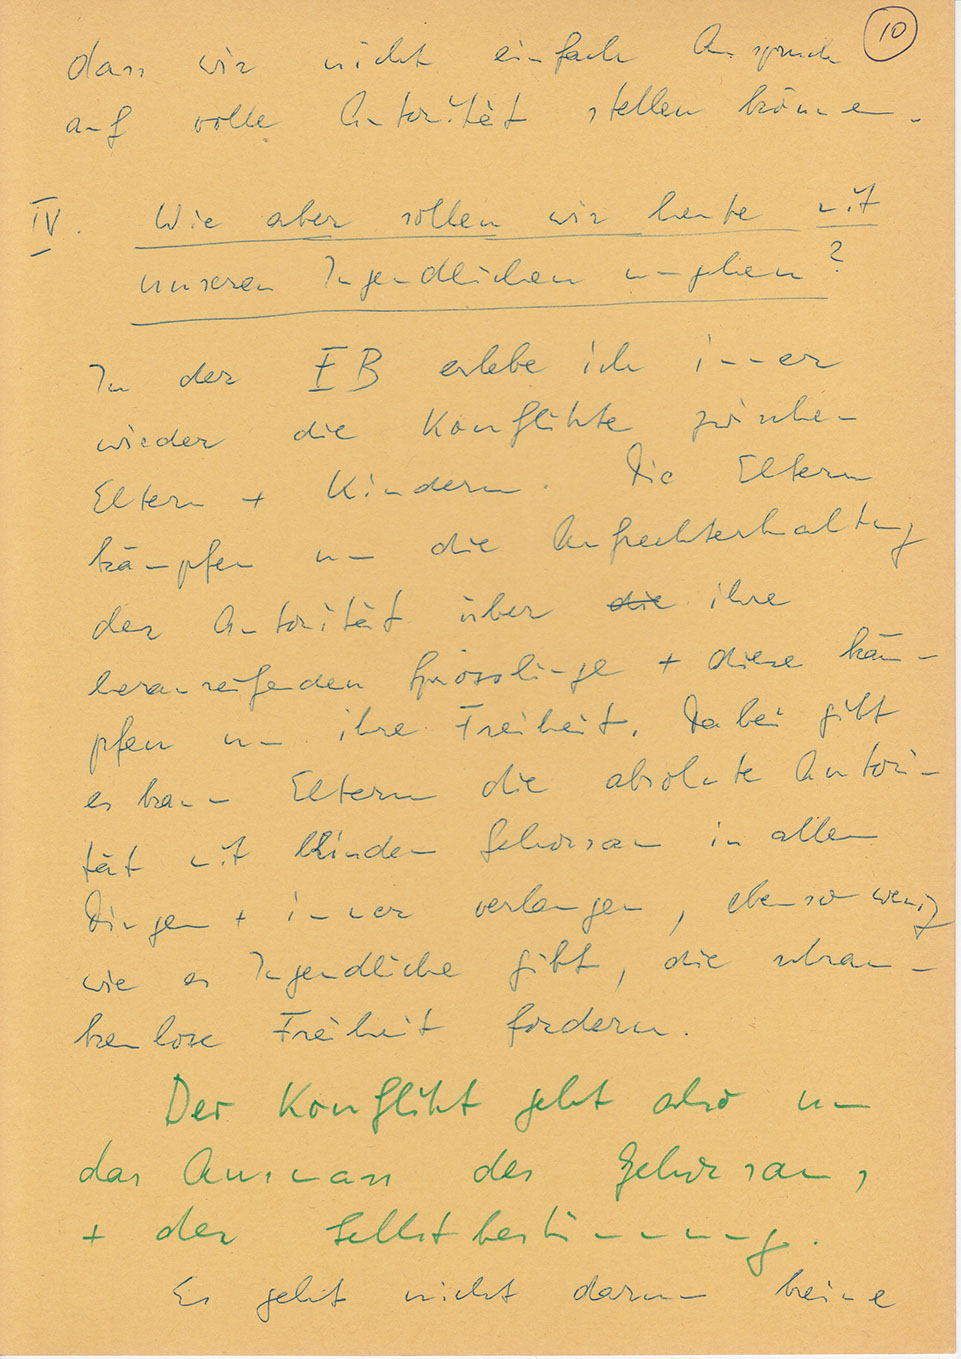 10
dass wir nicht einfach Anspruch
auf volle Autorität stellen können.
IV. Wie aber sollen wir heute mit
unseren Jugendlichen umgehen?
In der EB erlebe ich immer
wieder die Konflikte zwischen
Eltern + Kindern. Die Eltern
kämpfen um die Aufrechterhaltung
der Autorität über die ihre
heranreifenden Sprösslinge + diese käm-
pfen um ihre Freiheit. Dabei gibt
es kaum Eltern die absolute Autori-
tät mit blindem Gehorsam in allen
Dingen + immer verlangen, ebenso wenig
wie es Jugendliche gibt, die schran-
kenlose Freiheit fordern.
Der Konflikt geht also um
das Ausmass des Gehorsams
+ der Selbstbestimmung.
Es geht nicht darum keine